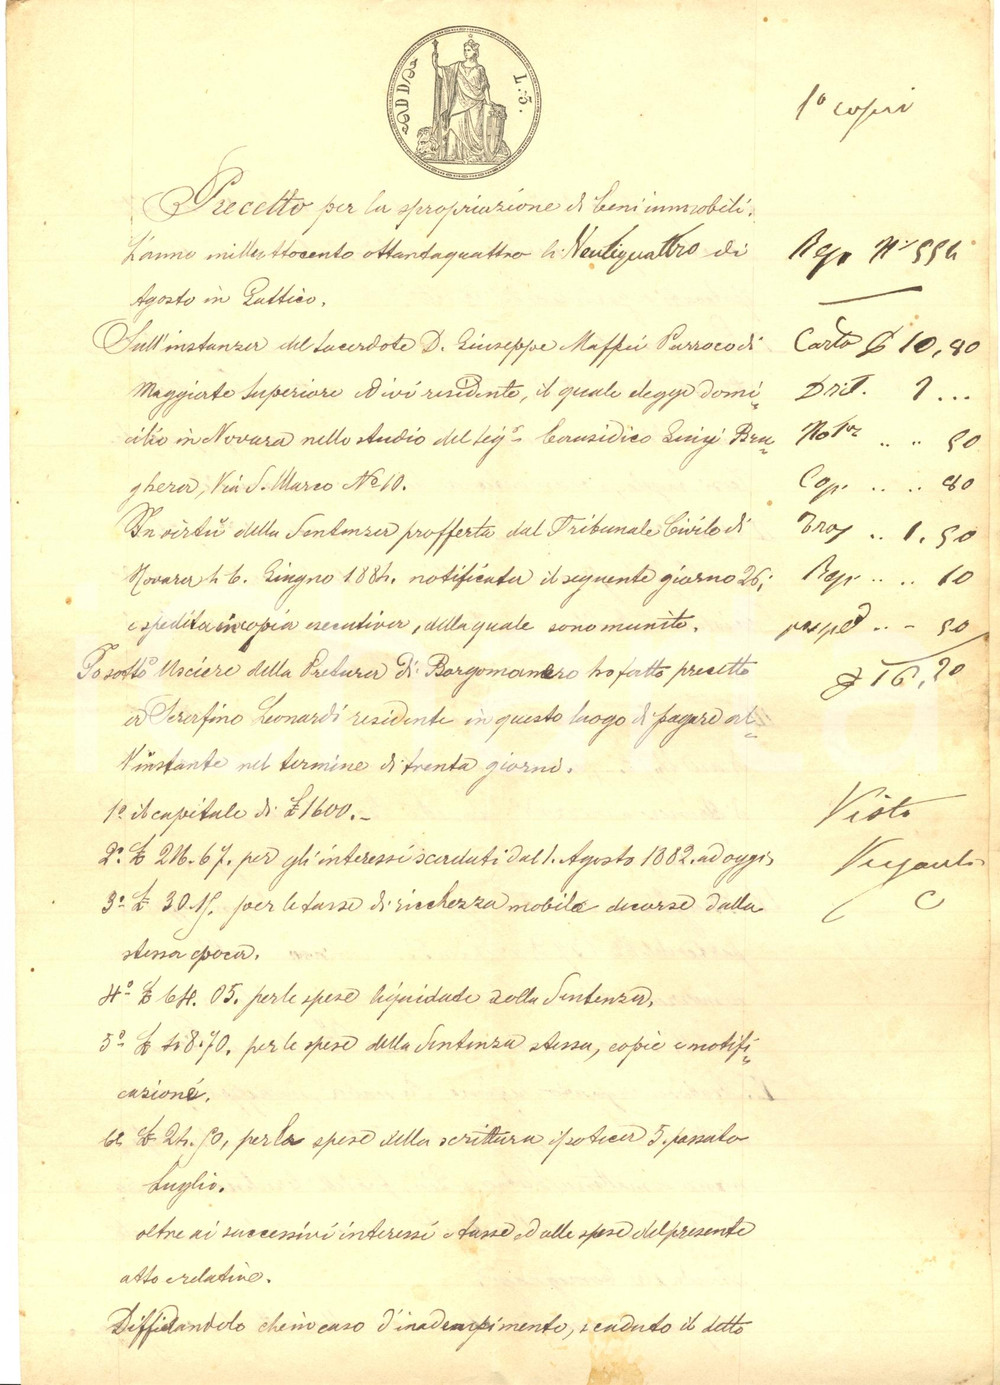 L. 5.
1ª copi
Precetto per la spropriazione di beni immobili.
L'anno milleottocento ottandaquattro li Ventiquattro di
Agosto in Gattico.
Sull'instanza del sacerdote D. Giuseppe Maffei Parroco di
Maggiate Superiore ed ivi residente, il quale elegge domi=
cilio in Novara nello studio del sigr Causidico Luigi Bru=
ghera, Via S. Marco No 10.
In virtù della Sentenza profferta dal Tribunale Civile di
Novara li 6. Giugno 1884. notificata il seguente giorno 26;
e spedita in copia esecutiva, della quale sono munito.
Io sottoo Usciere della Pretura di Borgomanero ho fatto precetto
a Serafino Leonardi residente in questo luogo di pagare al=
l'instante nel termine di trenta giorni.
1o il capitale di £ 1600.-
2o £ 216.67. per gli interessi scaduti dal 1. Agosto 1882. ad oggi;
3o £ 30.15. per le tasse di ricchezza mobile decorse dalla
stessa epoca.
4o £ 64.05. per le spese liquidate nella Sentenza.
5o £ 48.70. per le spese della Sentenza stessa, copie e notifi=
cazione.
6o £ 24.50, per le spese della scrittura ipoteca 5. passato
Luglio.
oltre ai successivi interessi e tasse ed alle spese del presente
atto e relative.
Diffidandolo che in caso d'inadempimento, scaduto il detto
Rep. No 554
Carta £ 10,80
Drit. 1 ...
Notor .. .. 50
Cop. .. .. 80
Tras .. 1.50
Rep. .. .. 10
.. - 50
£ 16,20
Visto